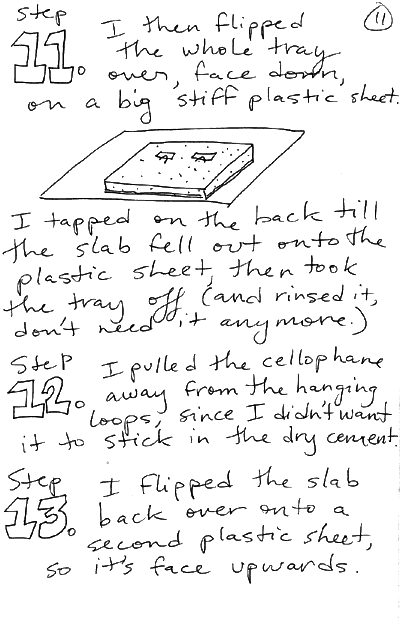 Step 11. I then flipped
11
the whole tray
over, face down,
on a big stiff plastic sheet.
I tapped on the back till
the slab fell out onto the
plastic sheet, then took
the tray off (and rinsed it,
don't need it anymore.)
Step 12. I pulled the cellophane
away from the hanging
loops, since I didn't want
it to stick in the dry cement.
Step 13. I flipped the slab
back over onto a
second plastic sheet,
so it's face upwards.